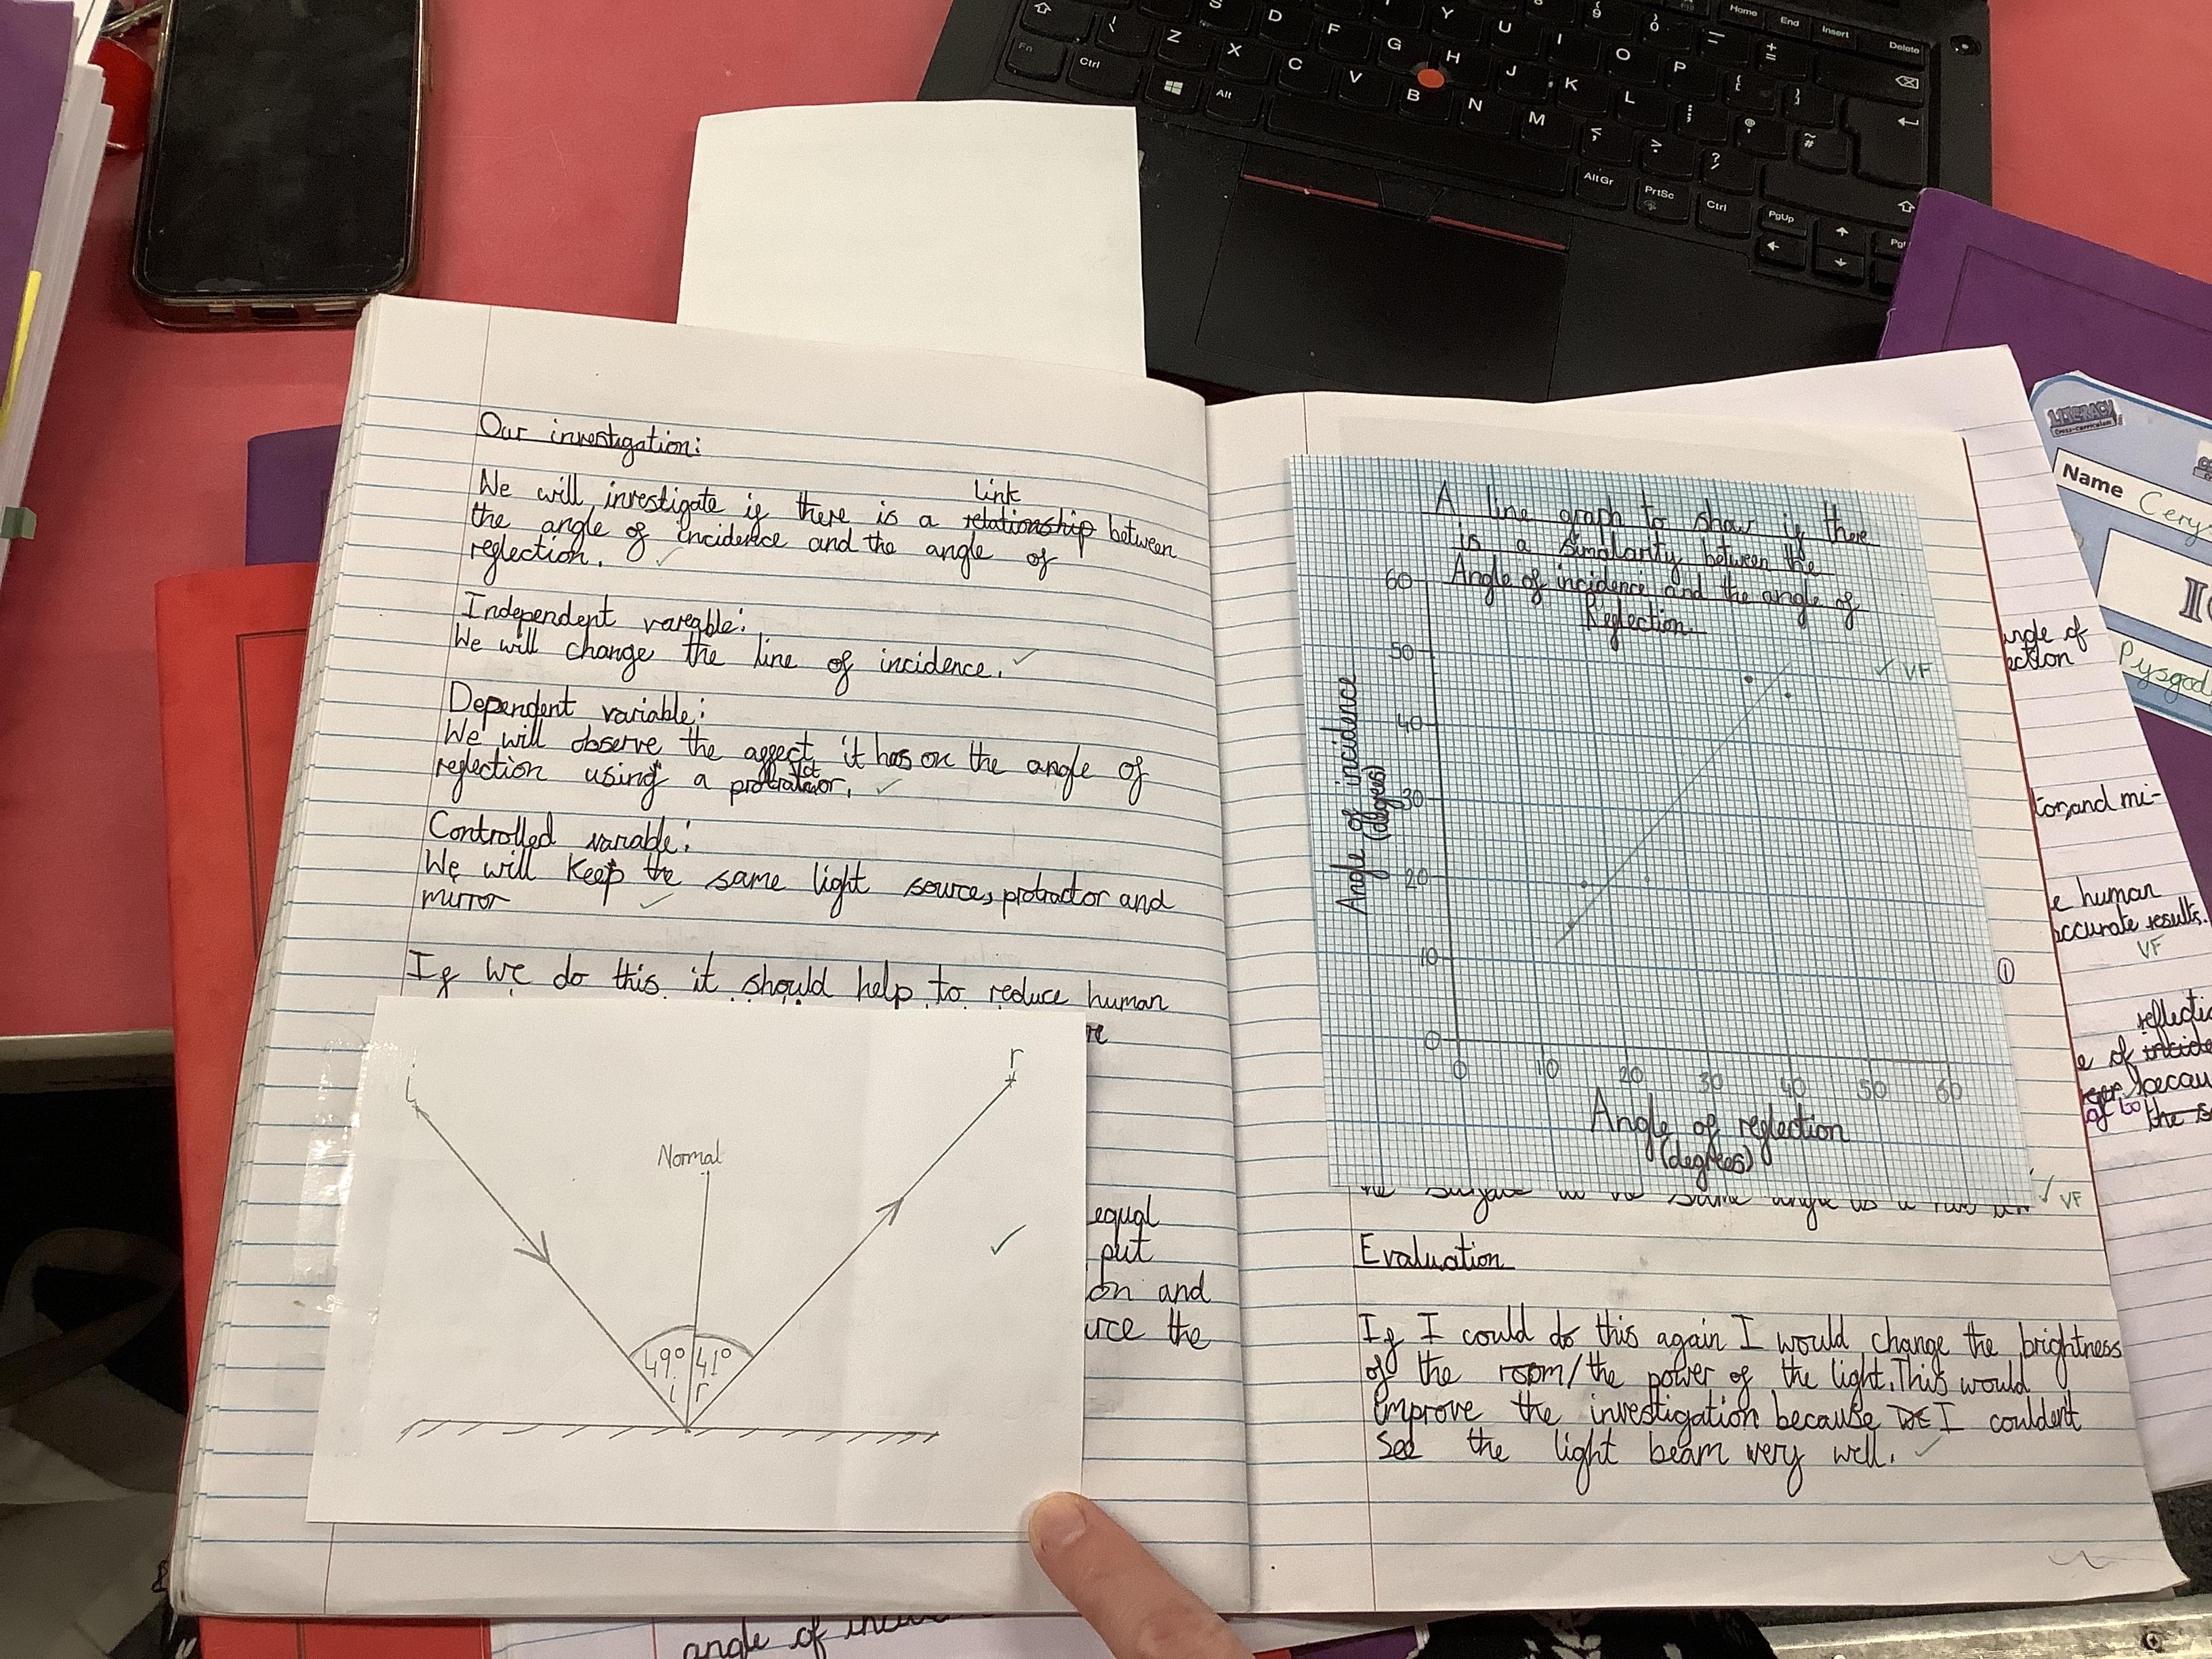 Our investigation:
link
We will investigate if there is a relationship between
the angle of incidence and the angle of
reflection.
Independent vareable:
We will change the line of incidence.
Dependent variable:
We will observe the affect it has on the angle of
reflection using a protractor.
Controlled variable:
We will keep the same light source, protractor and
mirror
If we do this it should help to reduce human
re
i
r
Normal
49° 41°
i r
equal
put
on and
urce the
A line graph to show if there
is a similarity between the
Angle of incidence and the angle of
Reflection
VF
Angle of incidence
(degrees)
60
50
40
30
20
10
0
0 10 20 30 40 50 60
Angle of reflection
(degrees)
the surface the same angle as a
VF
Evaluation
If I could do this again I would change the brightness
of the room/the power of the light. This would
improve the investigation because I couldent
see the light beam very well.
LITERACY
Cross-curricular
Name Cerys
Pysgod
angle of
ection
tor and mi-
e human
accurate results.
VF
1
reflectio
e of incide
becau
the s
angle of
Fn
Ctrl
Alt
Alt Gr
PrtSc
Ctrl
PgUp
Home
End
Insert
Delete
S D F G H J K L
Z X C V B N M
Y U I O P